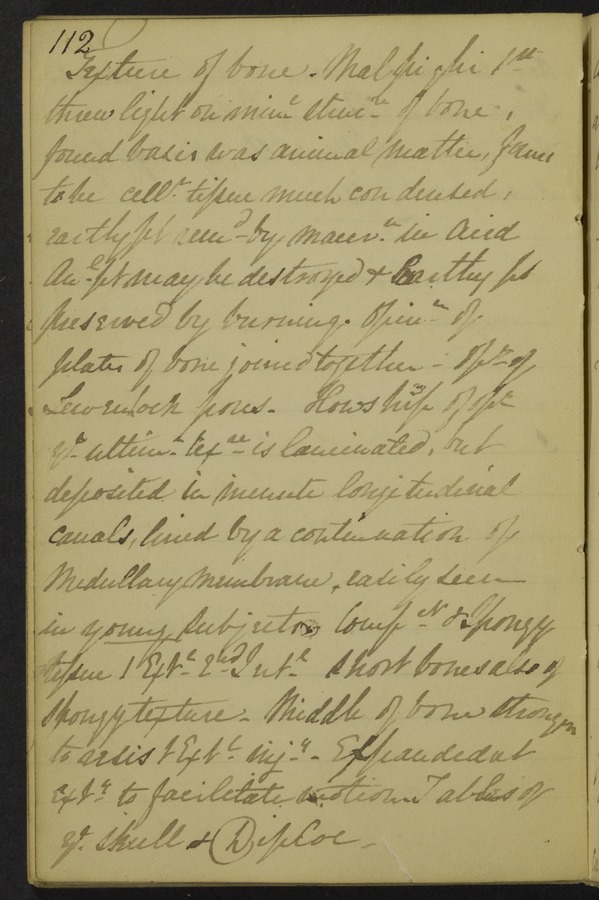 112
Texture of bone. Malpighi 1st
threw light on minte struc-re of bone,
found basis was animal matter, found
to be cellr tissue much condensed,
earthy pt remd by macern in Acid
Anl pt may be destroyed & Earthy pt
preserved by burning. Opinn of
plates of bone joined together - Opn of
Lewenhock pores. Howship of opn
yt ultimte texre is laminated, but
deposited in minute longitudinal
canals, lined by a continuation of
Medullary membrane, easily seen
in young subjects. Compt & Spongy
tissue 1 Extl 2nd Intl short bones also of
spongy texture. Middle of bone stronger
to resist Extl injy - Expanded at
Exts to facilitate motion. Tables of
ye skull & Diploe -